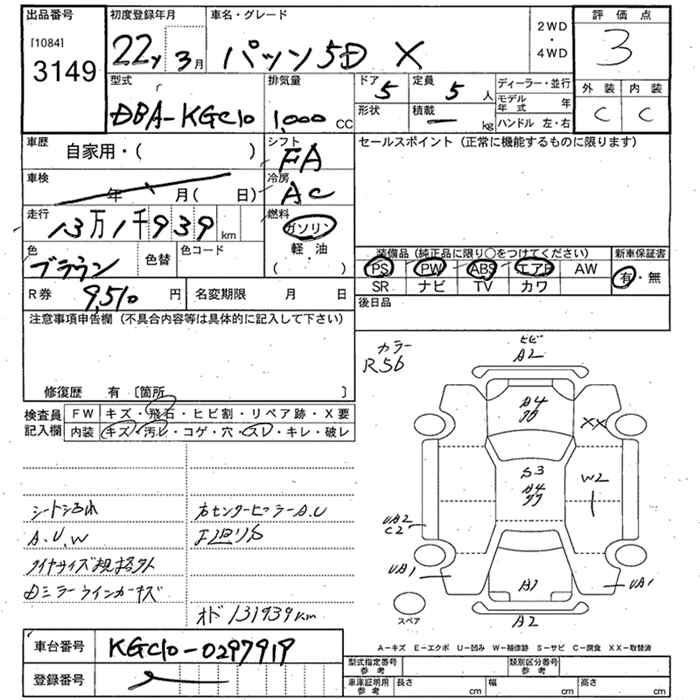 出品番号 初度登録年月 車名・グレード 2WD・4WD 評価点
[1084] 3149 22y 3月 パッソ5D X 3
型式 排気量 ドア 5 定員 5人 ディーラー・並行 外装 内装
DBA-KGC10 1,000 CC 形状 積載 ー kg モデル年式 年 C C
ハンドル 左・右
車歴 自家用・( ) シフト FA セールスポイント (正常に機能するものに限ります)
車検 年 月( 日) 冷房 AC
走行 13万1千939 km 燃料 ガソリン
色 ブラウン 色替 色コード 軽油 ( ) 装備品 (純正品に限り○をつけてください) 新車保証書
PS PW ABS エアB AW 有・無
SR ナビ TV カワ
R券 9,510 円 名変期限 月 日 後日品
注意事項申告欄 (不具合内容等は具体的に記入して下さい)
修復歴 有 〔箇所 〕
検査員記入欄 FW キズ・飛石・ヒビ割・リペア跡・X要
内装 キズ・汚レ・コゲ・穴・スレ・キレ・破レ
カラー
R56
ヒビ
A2
A4
XX
S3
A4
W2
UA2
C2
UA1
A1
UA1
A2
スペア
A-キズ E-エクボ U-凹み W-補修跡 S-サビ C-腐食 XX-取替済
シートよごれ 右センターピラーA.U
A.U.W
タイヤサイズ規格外
Dミラーウインカーキズ
オド 131939km
車台番号 KGC10-0297919
登録番号
型式指定番号 参考 類別区分番号 参考
車庫証明用 参考 長さ cm 幅 cm 高さ cm